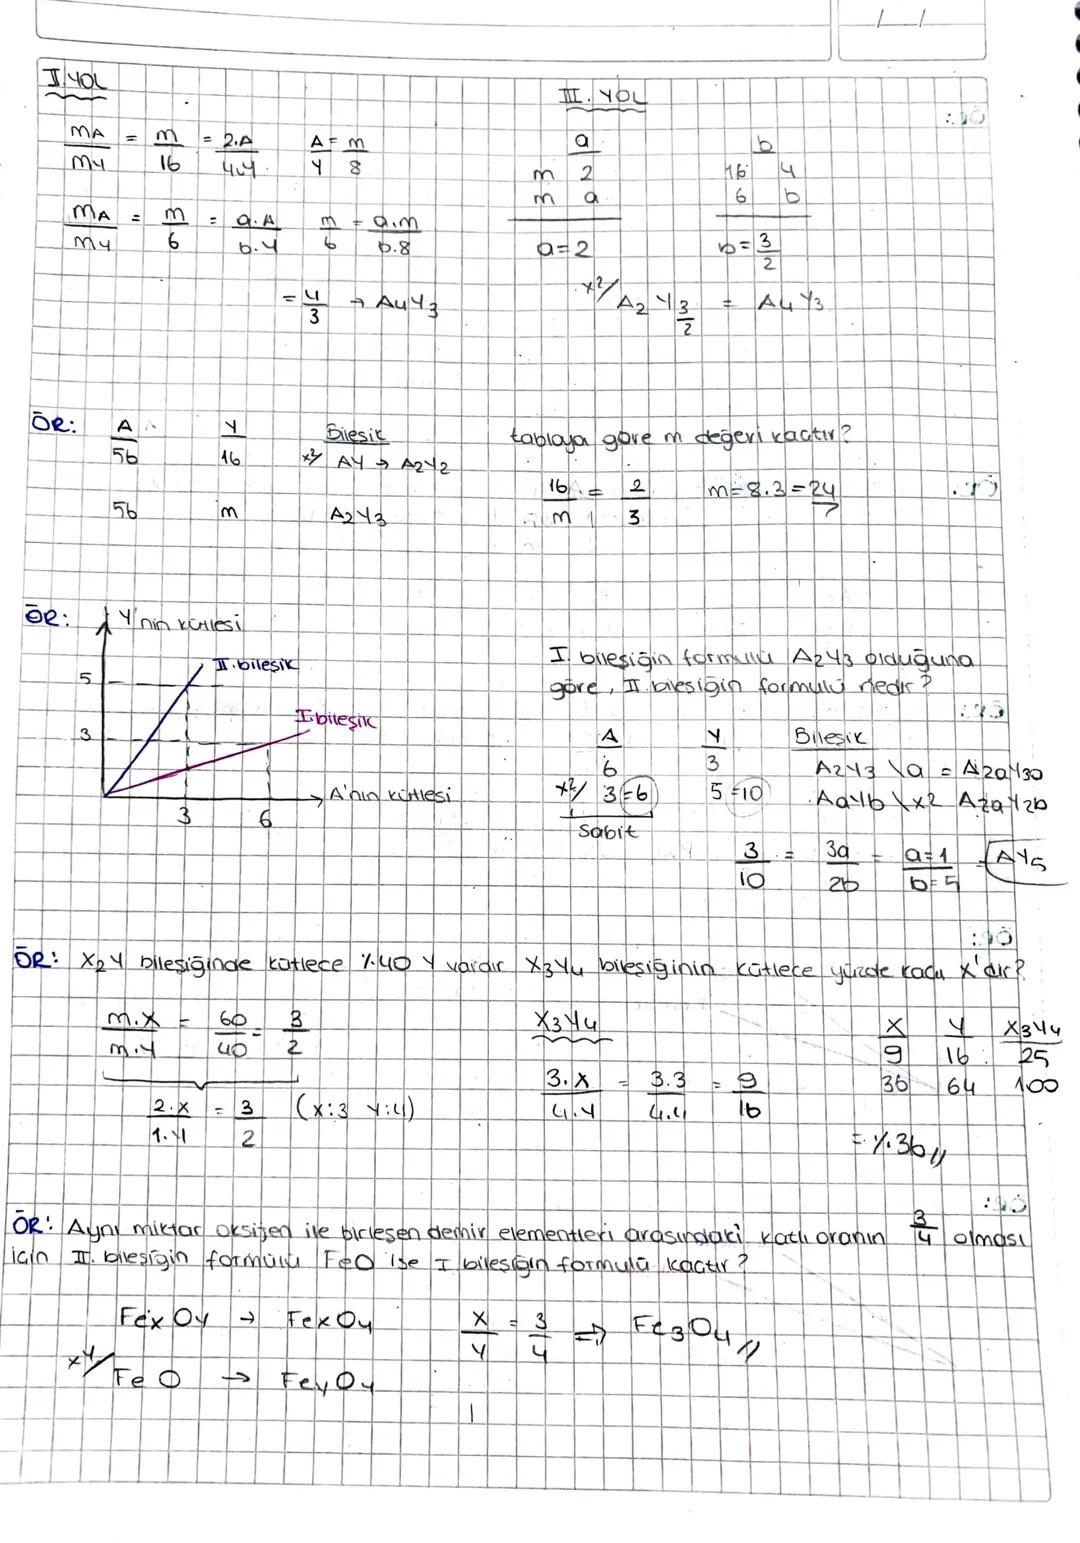 I. YOL
mA/mY = m/16 = 2.A/4.Y A/Y = m/8
mA/mY = m/6 = a.A/b.Y m/6 = a.m/b.8
= 4/3 → A4Y3
II. YOL
a b
m 2 16 4
m a 6 b
a=2 b=3/2
x2/ A2Y3/2 = A4Y3
ÖR: A Y Bileşik tabloya göre m değeri kaçtır?
56 16 x2/ AY → A2Y2
56 m A2Y3
16/m = 2/3 m=8.3=24
ÖR: Y'nin kütlesi
II. bileşik
5
I. bileşik
3
A'nın kütlesi
3 6
I. bileşiğin formülü A2Y3 olduğuna
göre, II. bileşiğin formulü nedir?
A Y Bileşik
6 3 A2Y3 \a = A2aY3a
x2/ 3=6 5=10 AaYb \x2 A2aY2b
Sabit
3/10 = 3a/2b = a=1/b=5 AY5
ÖR: X2Y bileşiğinde kütlece %40 Y vardır X3Y4 bileşiğinin kütlece yüzde kaçı X'dir?
m.X/m.Y = 60/40 = 3/2
2.X/1.Y = 3/2 (x:3 Y:4)
X3Y4
3.X/4.Y = 3.3/4.4 = 9/16
X Y X3Y4
9 16 25
36 64 100
= %36//
ÖR: Aynı miktar oksijen ile birleşen demir elementleri arasındaki katlı oranın 3/4 olması
için II. bileşiğin formülü FeO ise I bileşiğin formülü kaçtır?
FexOy → FexOy x/y = 3/4 ⇒ Fe3O4//
xy/ FeO → FeyOy